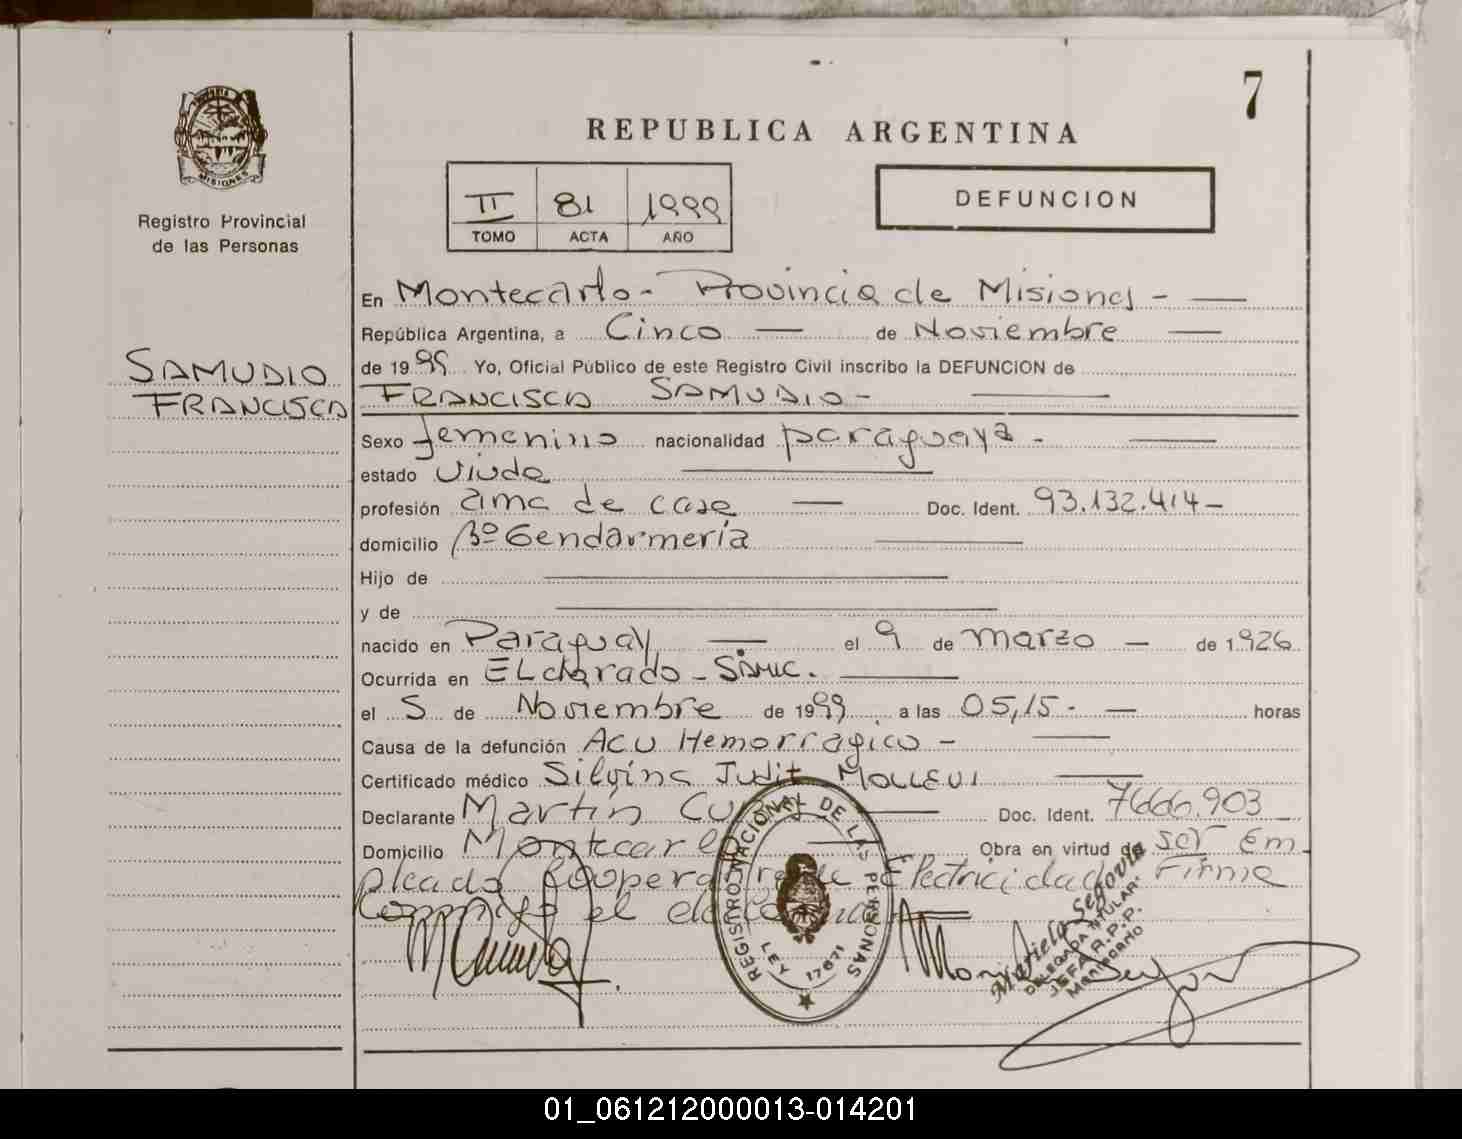 7
REPUBLICA ARGENTINA
MISIONES
Registro Provincial
de las Personas
II 81 1999
TOMO ACTA AÑO
DEFUNCION
En Montecarlo - Provincia de Misiones -
República Argentina, a Cinco de Noviembre
de 1999 Yo, Oficial Público de este Registro Civil inscribo la DEFUNCION de
SAMUDIO
FRANCISCA
FRANCISCA SAMUDIO -
Sexo femenino nacionalidad paraguaya -
estado Viuda
profesión ama de casa Doc. Ident. 93.132.414 -
domicilio Bº Gendarmería
Hijo de
y de
nacido en Paraguay el 9 de marzo de 1926
Ocurrida en ELdorado - SAMIC.
el 5 de Noviembre de 1999 a las 05,15 - horas
Causa de la defunción ACU Hemorragico -
Certificado médico Silvina Judit
Declarante Martín Doc. Ident. 7666.903
Domicilio Montecarlo Obra en virtud de ser Em
pleado Electricidad Firma
Conmigo el
REGISTRO NACIONAL DE LAS PERSONAS
LEY 17671
Mariela Segovia
DELEGADA TITULAR
JEFA R.P.P.
01_061212000013-014201